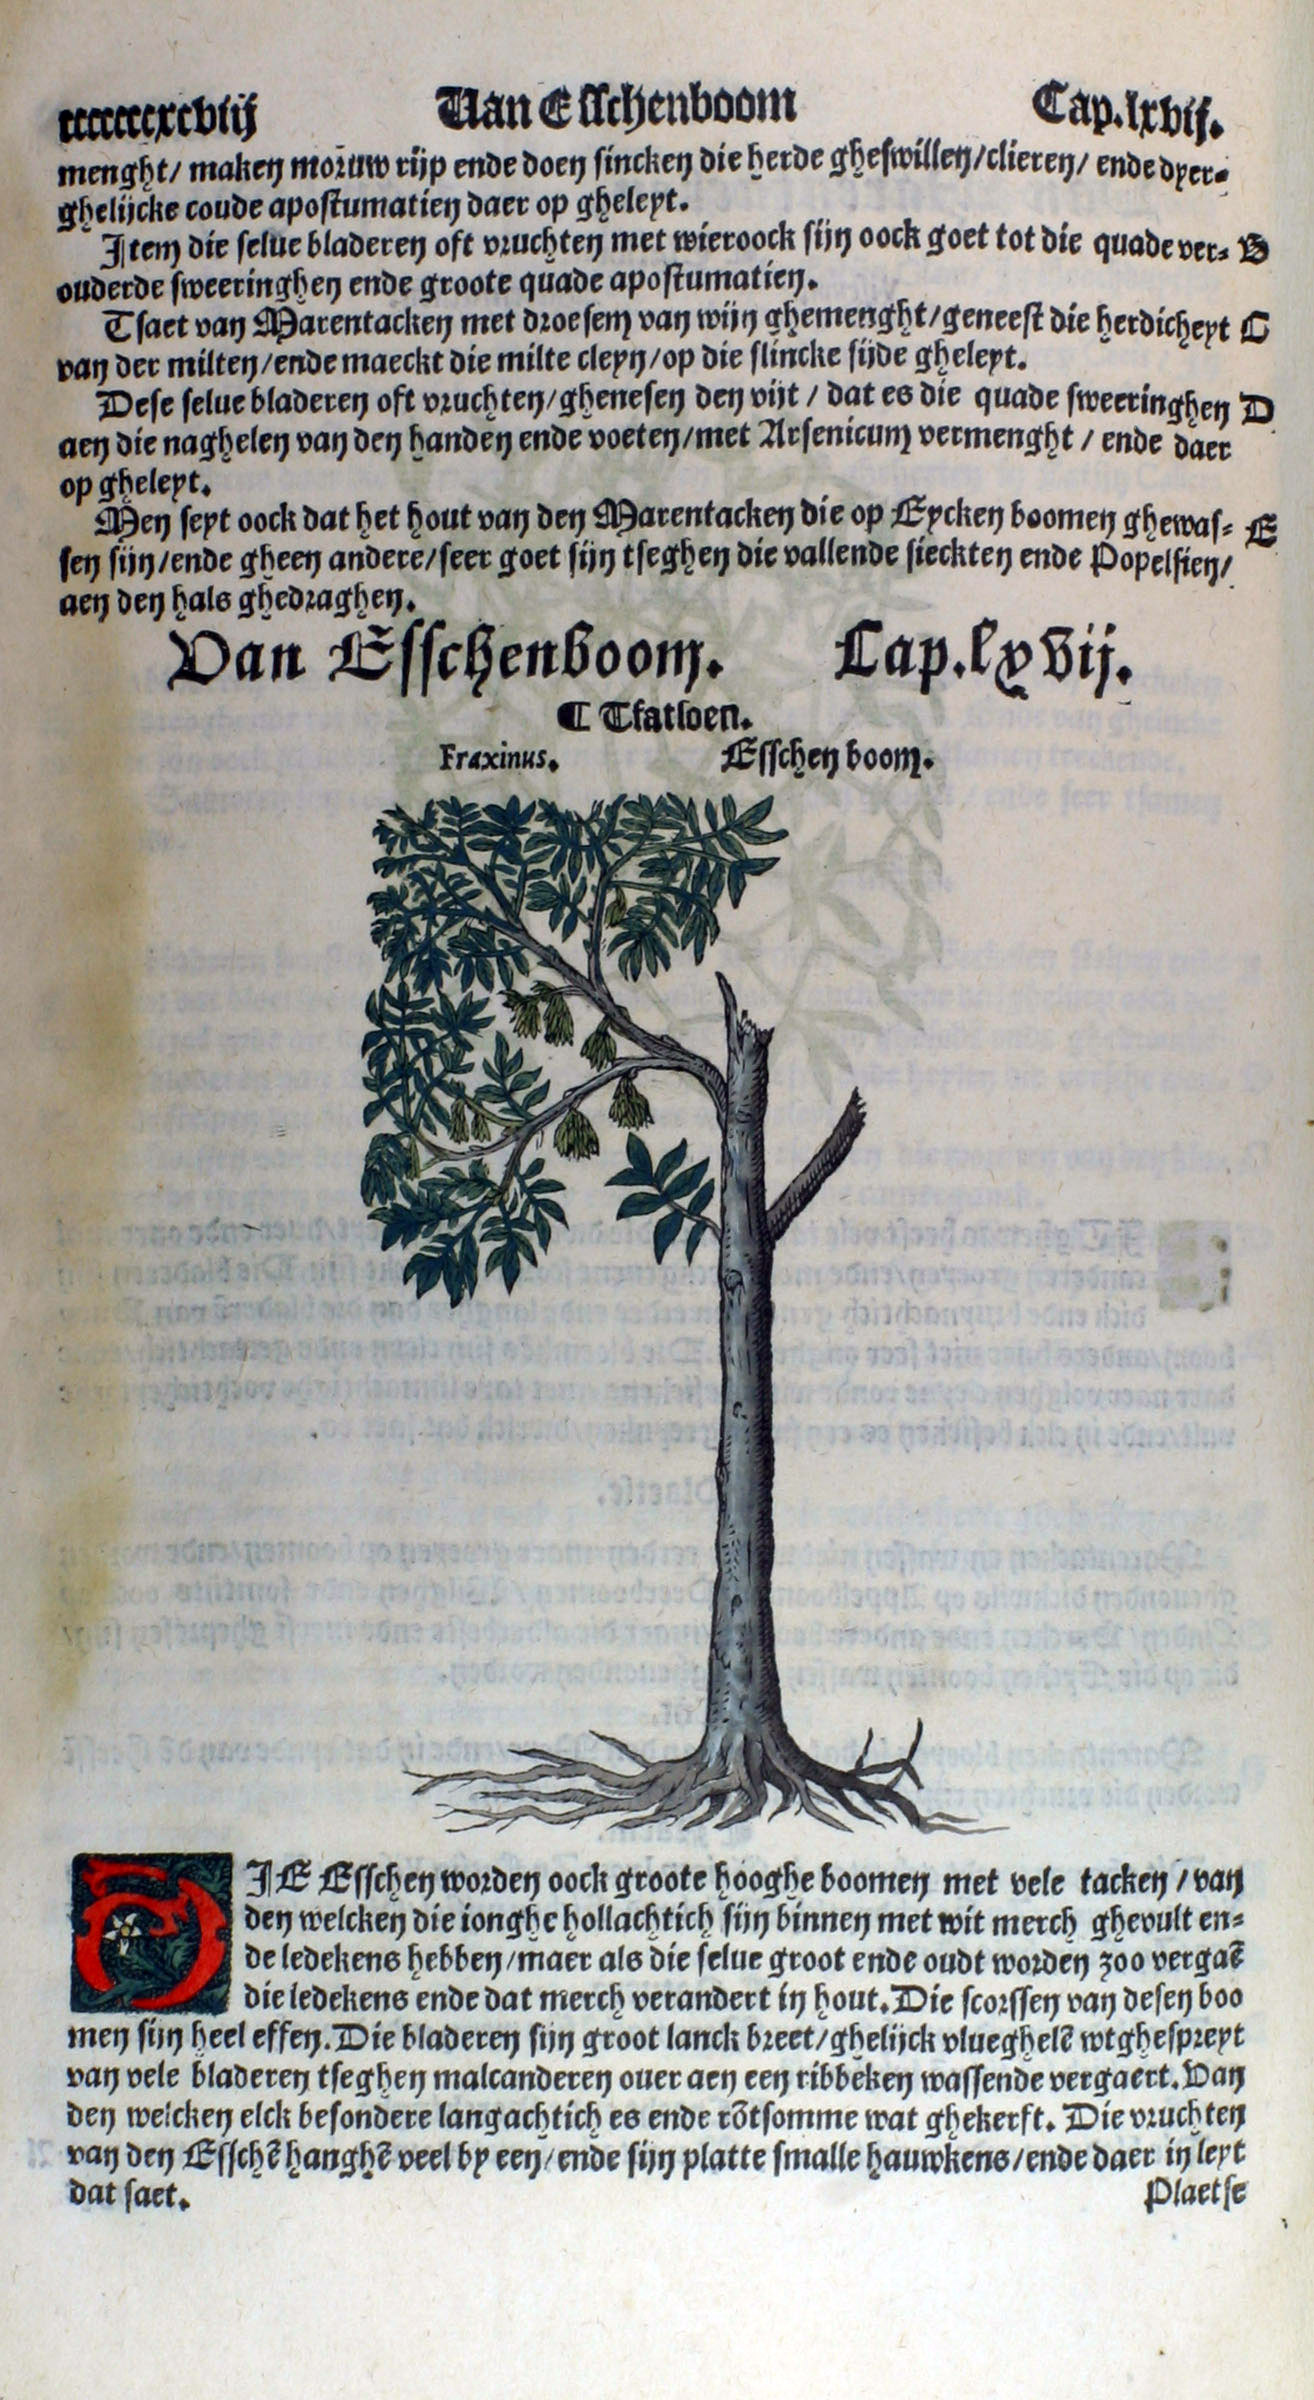 ccccccxcviij Van Esschenboom Cap.lxvij.
menght/ maken moruw rijp ende doen sincken die herde gheswillen/clieren/ ende dyer-
ghelijcke coude apostumatien daer op gheleyt.
Item die selue bladeren oft vruchten met wieroock sijn oock goet tot die quade ver- B
ouderde sweeringhen ende groote quade apostumatien.
Tsaet van Marentacken met droesem van wijn ghemenght/geneest die herdicheyt C
van der milten/ende maeckt die milte cleyn/op die slincke sijde gheleyt.
Dese selue bladeren oft vruchten/ghenesen den vijt / dat es die quade sweeringhen D
aen die naghelen van den handen ende voeten/met Arsenicum vermenght / ende daer
op gheleyt.
Men seyt oock dat het hout van den Marentacken die op Eycken boomen ghewas- E
sen sijn/ende gheen andere/seer goet sijn tseghen die vallende sieckten ende Popelsien/
aen den hals ghedraghen.
Van Esschenboom. Cap.lxvij.
¶ Tfatsoen.
Fraxinus. Esschen boom.
DIE Esschen worden oock groote hooghe boomen met vele tacken / van
den welcken die ionghe hollachtich sijn binnen met wit merch ghevult en-
de ledekens hebben/maer als die selue groot ende oudt worden zoo vergaẽ
die ledekens ende dat merch verandert in hout. Die scorssen van desen boo
men sijn heel effen. Die bladeren sijn groot lanck breet/ghelijck vlueghelẽ wtghespreyt
van vele bladeren tseghen malcanderen ouer aen een ribbeken wassende vergaert. Van
den welcken elck besondere langachtich es ende rõtsomme wat ghekerft. Die vruchten
van den Esschẽ hanghẽ veel by een/ende sijn platte smalle hauwkens/ende daer in leyt
dat saet. Plaetse